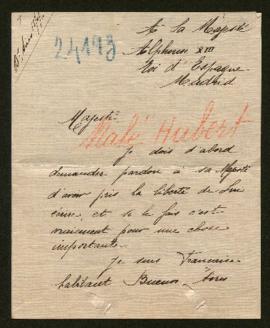 24193
A la Majesté
Alphonse XIII
Roi d'Espagne
Madrid
Majesté
Malé Hubert
Je dois d'abord
demander pardon à sa Majesté
d'avoir pris la liberté de lui
et si je le fais c'est
vraiment pour une chose
importante.
Je suis Française
habitant Buenos Aires